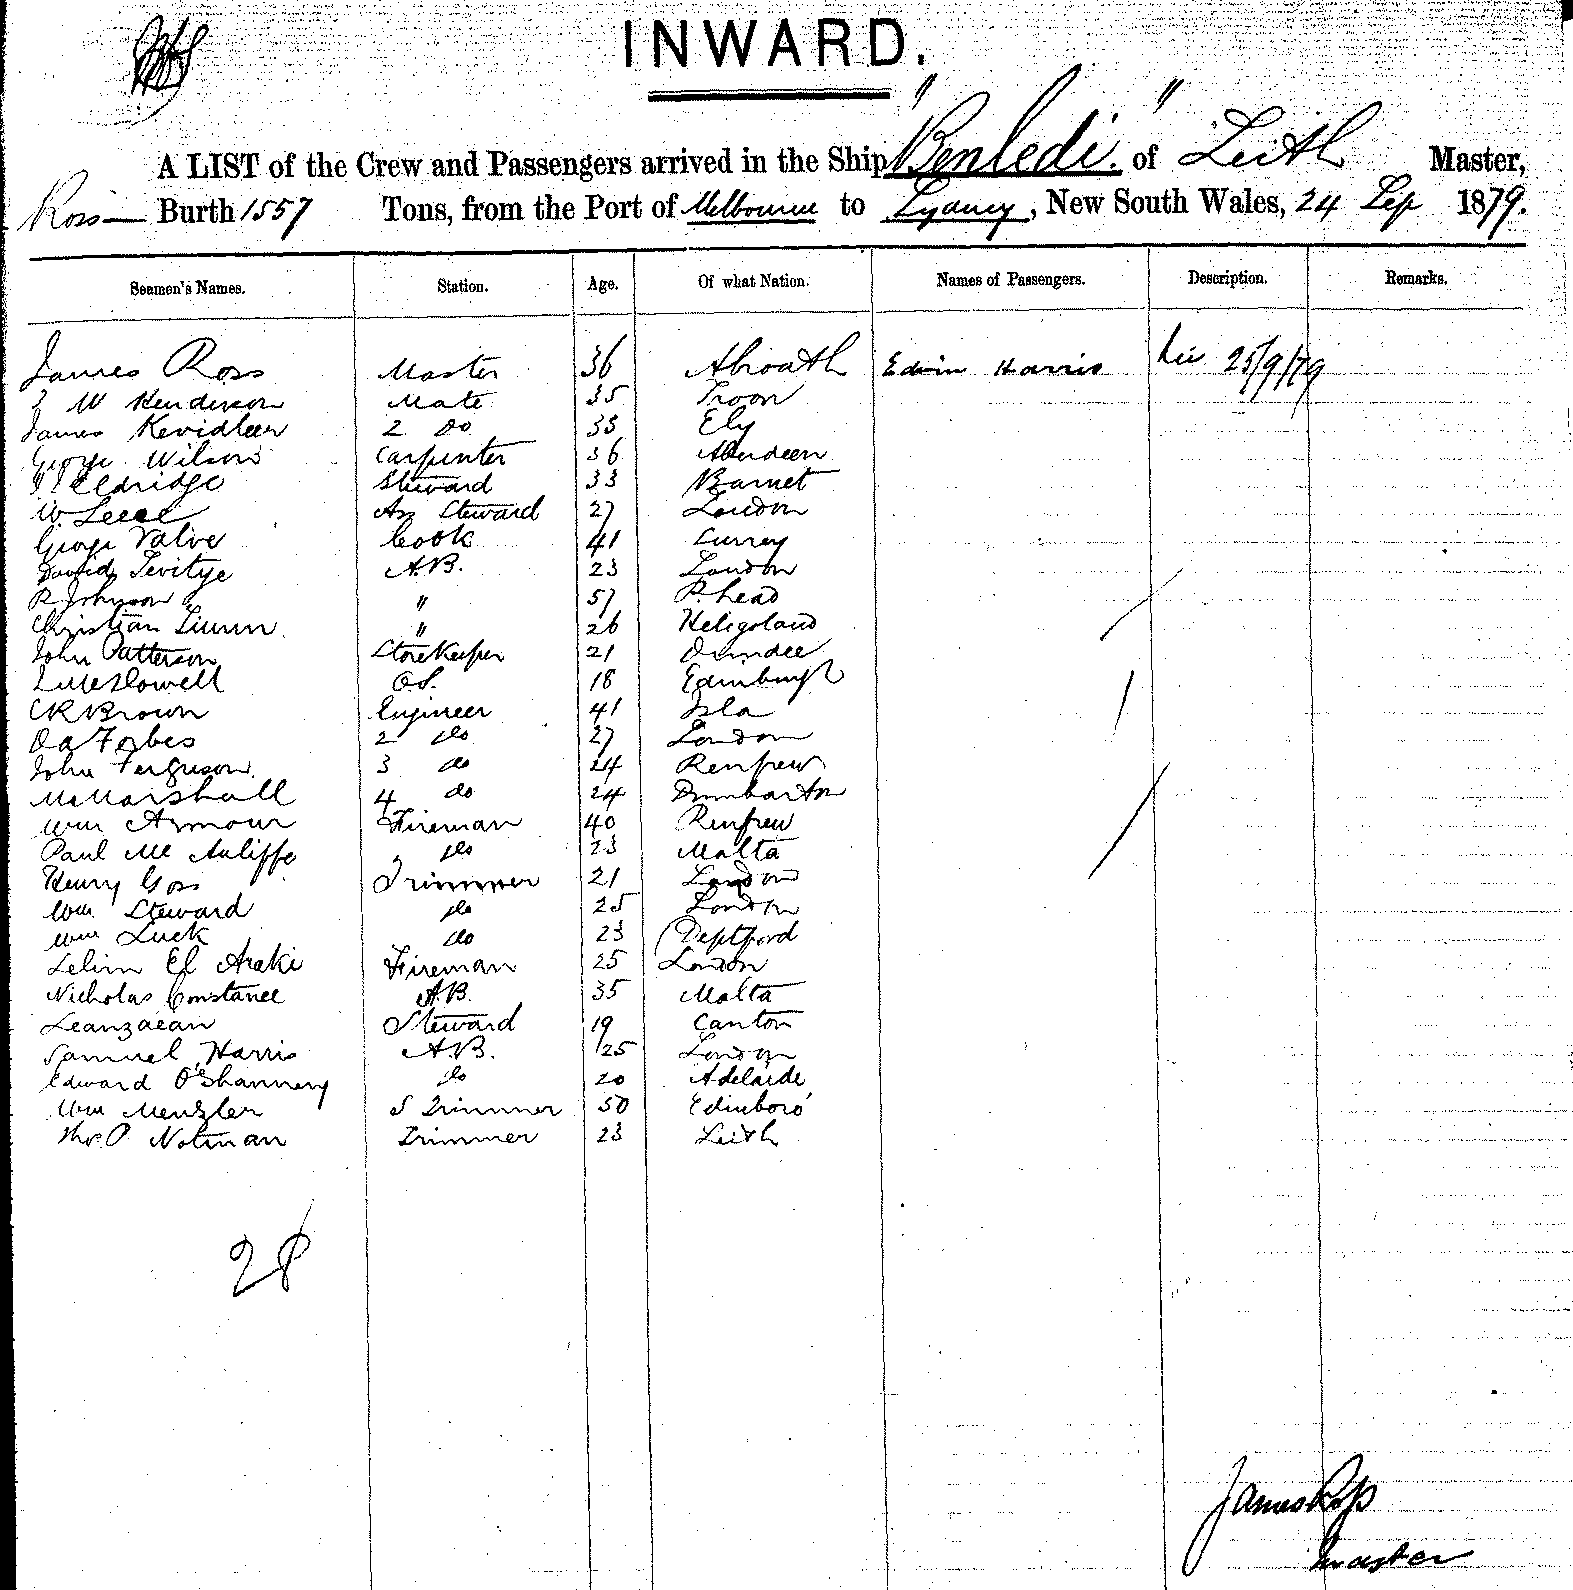 INWARD.
A LIST of the Crew and Passengers arrived in the Ship "Benledi." of Leith Master,
Ross Burth 1557 Tons, from the Port of Melbourne to Sydney, New South Wales, 24 Sep 1879.
Seamen's Names. Station. Age. Of what Nation. Names of Passengers. Description. Remarks.
James Ross Master 36 Abroath Edwin Harris 25/9/79
W Henderson Mate 35 Troon
James 2 Do 35 Ely
George Wilson Carpenter 36 Aberdeen
Eldridge Steward 33 Barnet
W. Ass Steward 27 London
George Valve Cook 41 Surrey
David Levitye A.B. 23 London
R Johnson " 57 P. head
Christian " 26 Heligoland
John Patterson Storekeeper 21 Dundee
McDowell O.S. 18 Edinburgh
CR Brown Engineer 41 Isla
Forbes 2 do 27 London
John Ferguson 3 do 24 Renfrew
Marshall 4 do 24 Dumbarton
Wm Armour Fireman 40 Renfrew
Paul Mc Auliffe do 23 Malta
Henry Goss Trimmer 21 London
Wm Steward do 25 London
Wm Luck do 23 Deptford
Selim El Araki Fireman 25 London
Nicholas Constance A.B. 35 Malta
Leanzaean Steward 19 Canton
Samuel Harris A.B. 25 London
Edward O'Shannery do 20 Adelaide
Wm Menzler S Trimmer 50 Edinboro'
Thos. P. Notman Trimmer 23 Leith
28
James Ross
Master